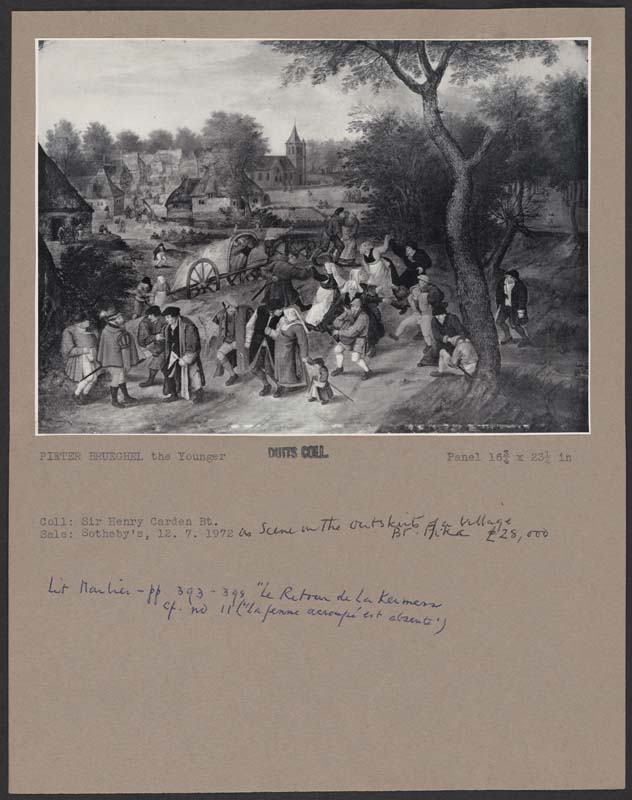 PIETER BRUEGHEL the Younger
DUITS COLL.
Panel 16¾ x 23½ in
Coll: Sir Henry Carden Bt.
Sale: Sotheby's, 12. 7. 1972 as Scene on the outskirts of a Village
Bt. £28,000
Lit Marlier - pp. 393 - 398 "Le Retour de la Kermesse
cf. no 11 ("la femme accroupie est absente")